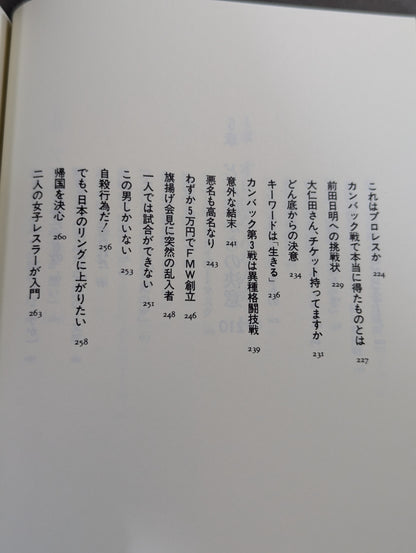 これはプロレスか 224
カンバック戦で本当に得たものとは 227
前田日明への挑戦状 229
大仁田さん、チケット持ってますか 231
どん底からの決意 234
キーワードは「生きる」 236
カンバック第3戦は異種格闘技戦 239
意外な結末 241
悪名も高名なり 243
わずか5万円でFMW創立 246
旗揚げ会見に突然の乱入者 248
一人では試合ができない 251
この男しかいない 253
自殺行為だ! 256
でも、日本のリングに上がりたい 258
帰国を決心 260
二人の女子レスラーが入門 263